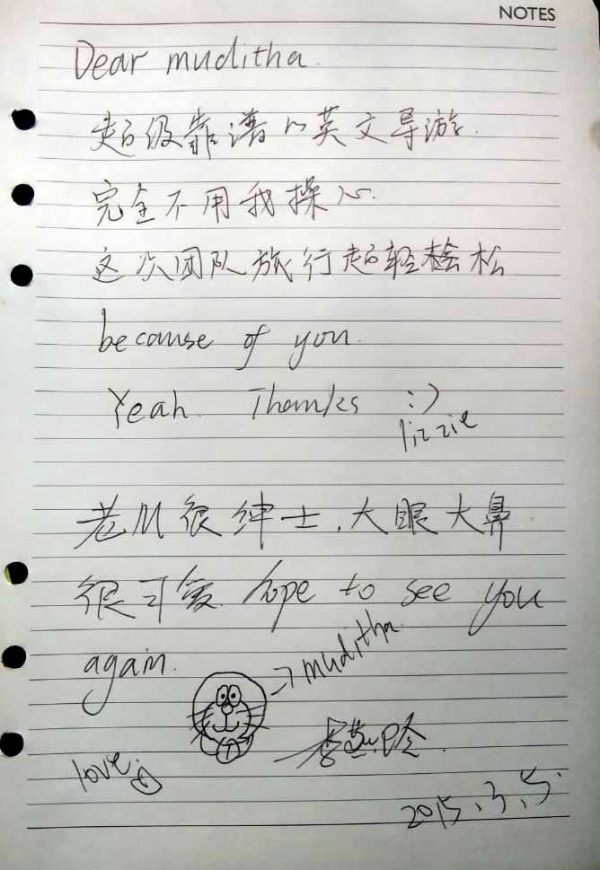 NOTES
Dear muditha.
超级靠谱的英文导游.
完全不用我操心.
这次团队旅行超轻松
because of you.
Yeah. Thanks :)
lizzie
老M很绅士,大眼大鼻
很可爱. hope to see you
again.
→muditha
love
2015.3.5.